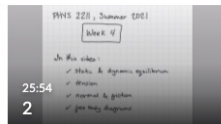 PHYS 2211, Summer 2021
Week 4
In this video:
✓ static & dynamic equilibrium
✓ tension
✓ normal & friction
✓ free body diagrams
25:54
2